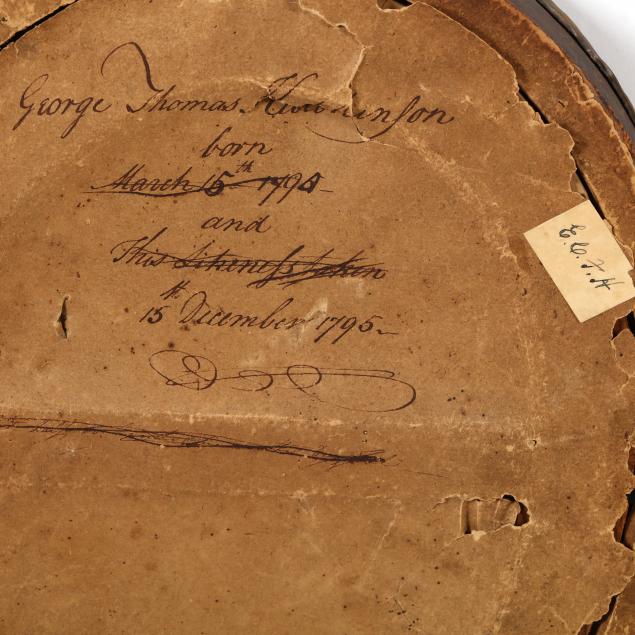 George Thomas Hutchinson
born
March 15th 1794
and
This Likeness taken
15th December 1795
E. C. F. H